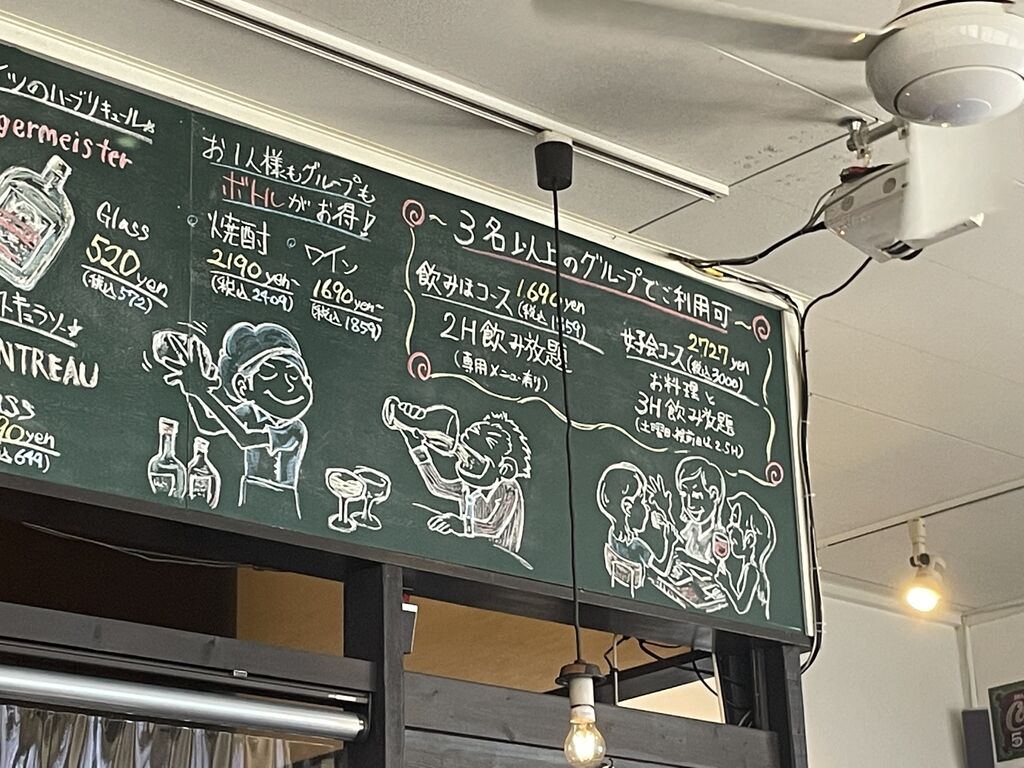 イツのハーブリキュール
germeister
Glass
520yen
(税込572)
トキュラソー
NTREAU
90yen
(税込649)
お1人様もグループも
ボトルがお得!
焼酎
2190yen
(税込2409)
ワイン
1690yen
(税込1859)
〜3名以上のグループでご利用可〜
飲みほコース 1690yen
2H飲み放題
(専用メニュー有り)
女子会コース 2727yen
(税込3000)
お料理と
3H飲み放題